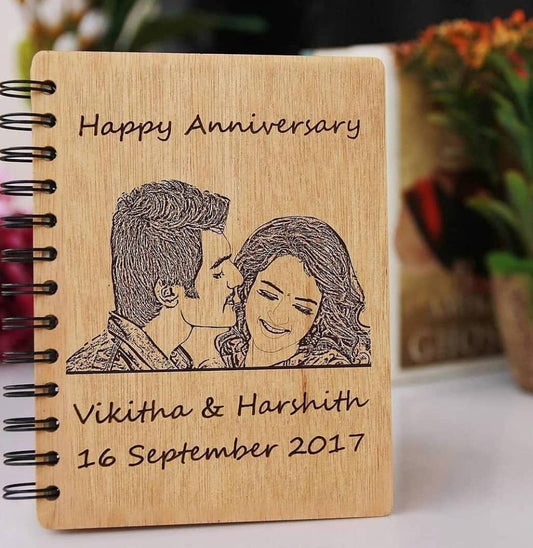 Happy Anniversary
Vikitha & Harshith
16 September 2017